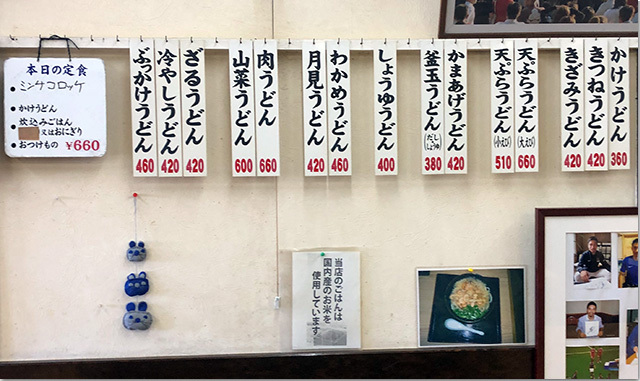 本日の定食
ミンチコロッケ
かけうどん
炊込みごはん
又はおにぎり
おつけもの ¥660
ぶっかけうどん 460
冷やしうどん 420
ざるうどん 420
山菜うどん 600
肉うどん 660
月見うどん 420
わかめうどん 460
しょうゆうどん 400
釜玉うどん (だし しょうゆ) 380
かまあげうどん 420
天ぷらうどん (小えび) 510
天ぷらうどん (大えび) 660
きざみうどん 420
きつねうどん 420
かけうどん 360
当店のごはんは
国内産のお米を
使用しています。